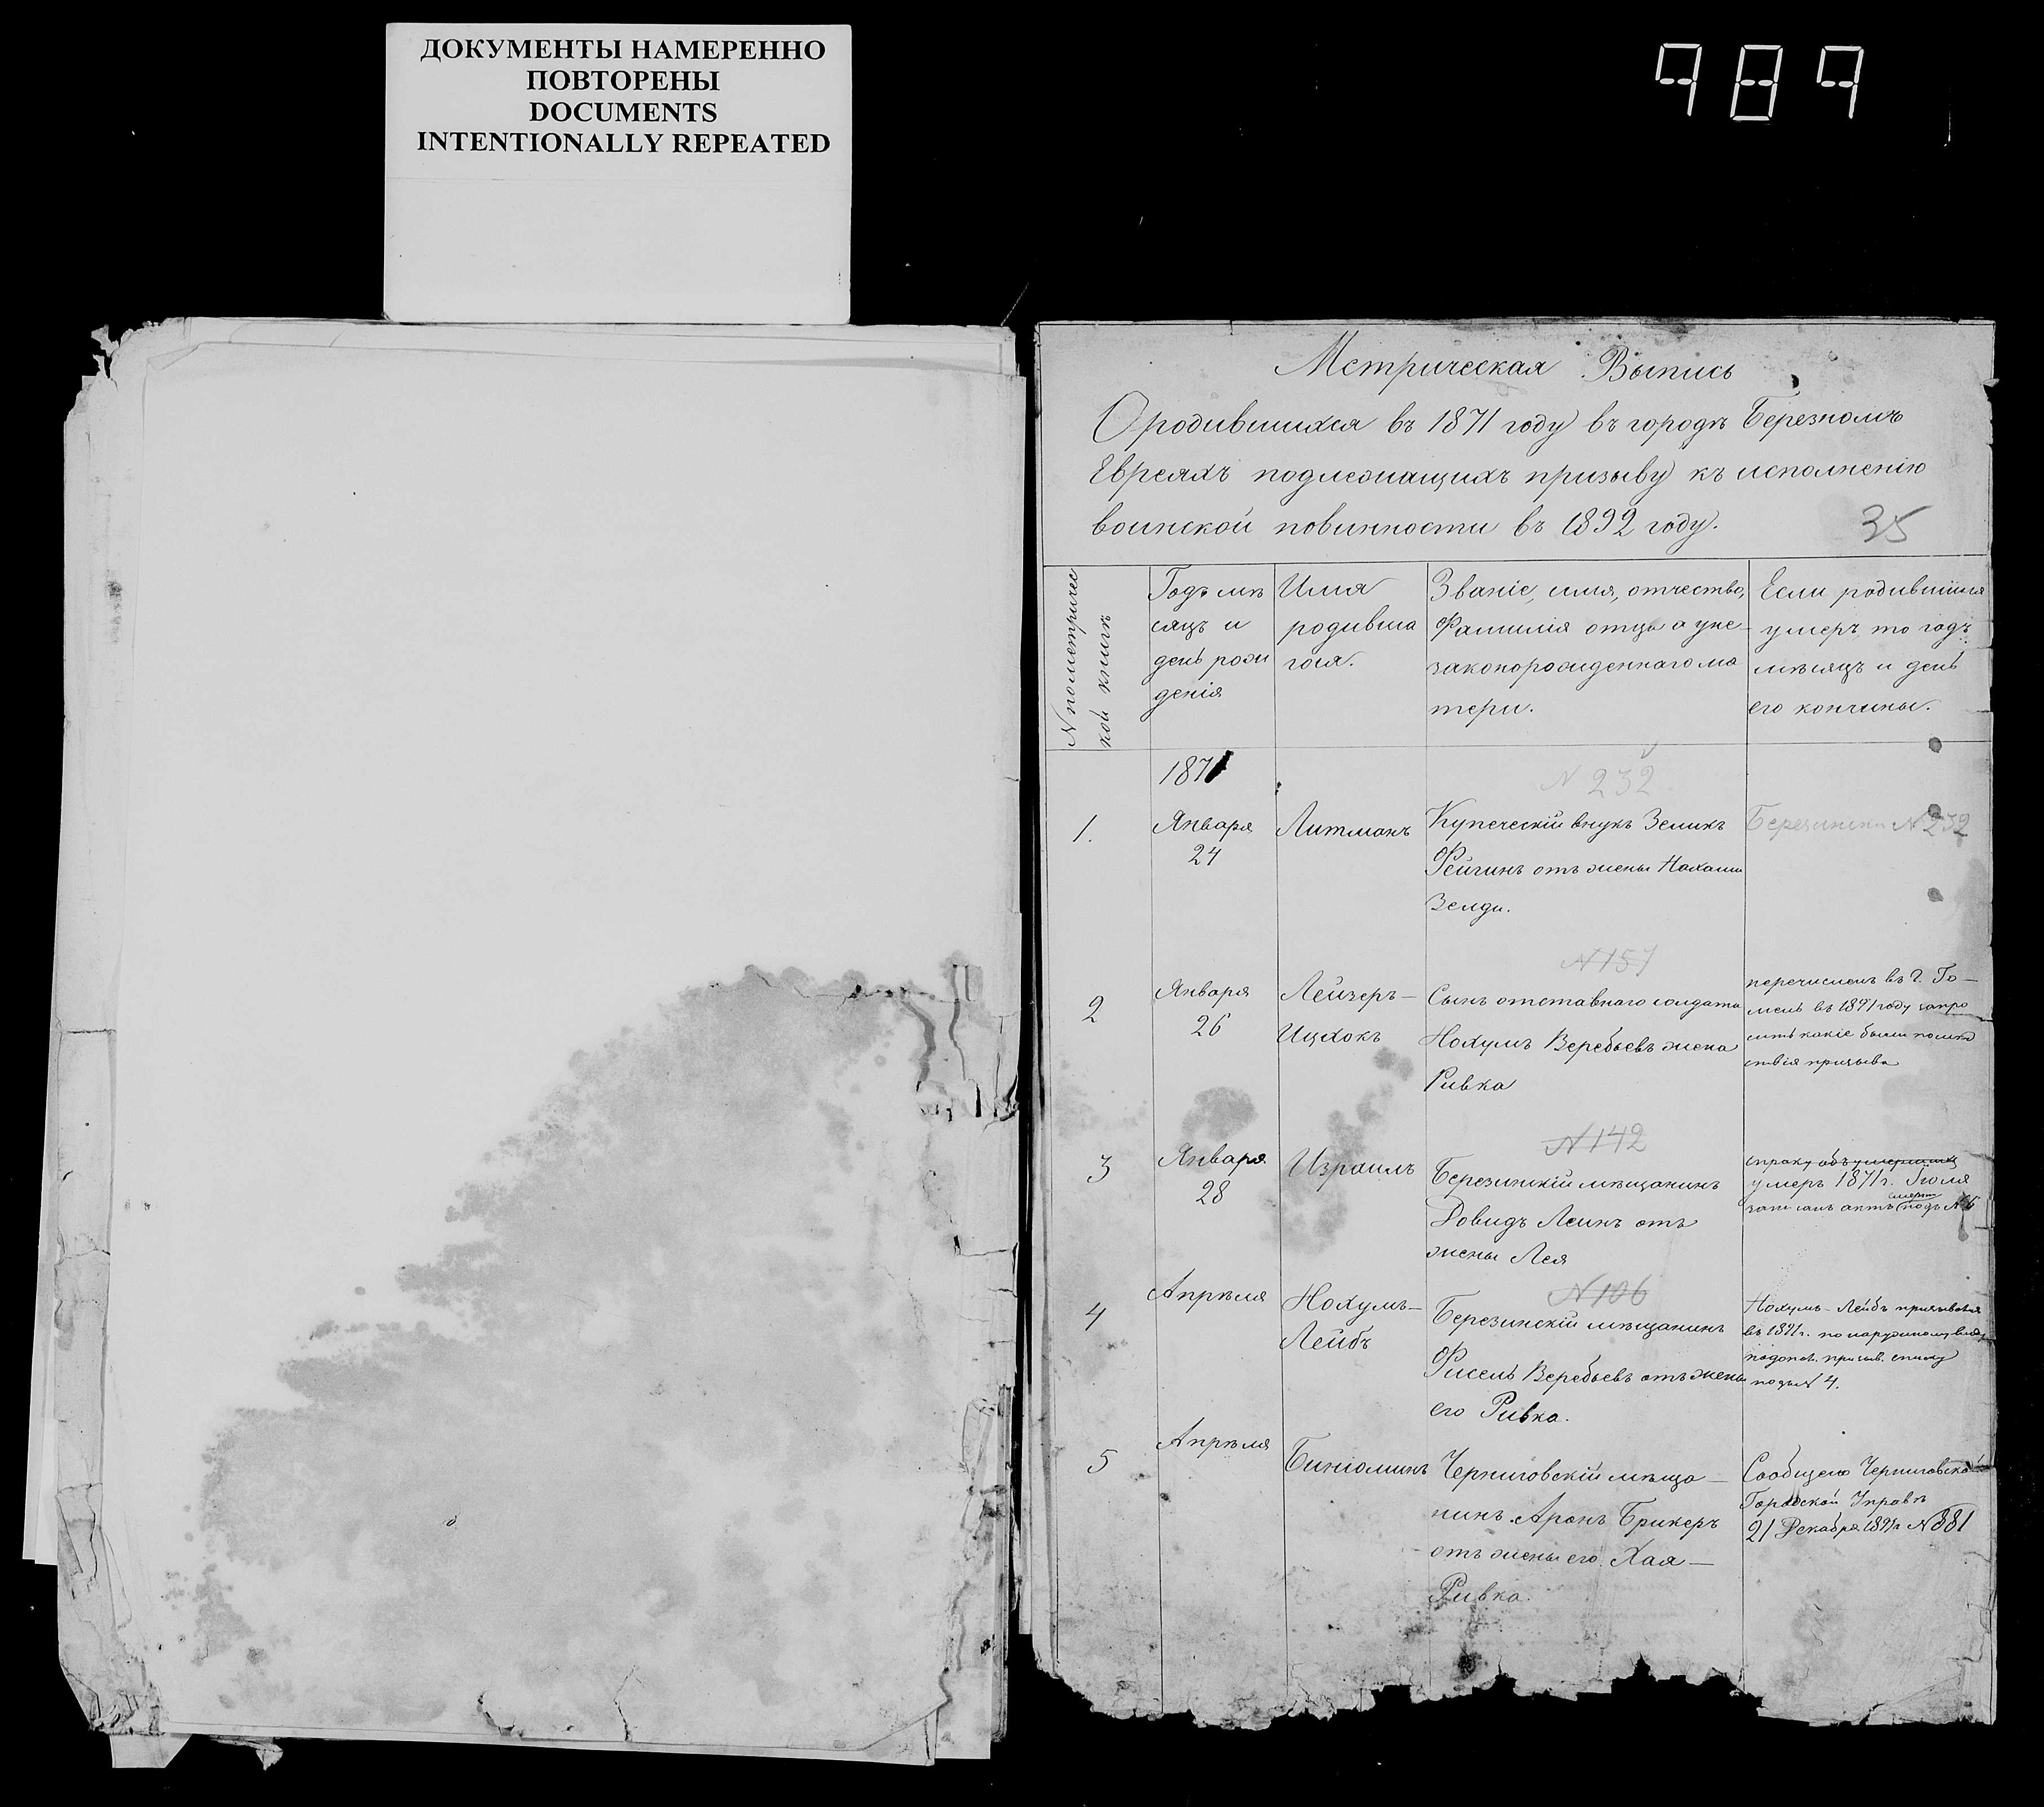 ДОКУМЕНТЫ НАМЕРЕННО
ПОВТОРЕНЫ
DOCUMENTS
INTENTIONALLY REPEATED
989
Метрическая Выпись
О родившихся въ 1871 году въ городѣ Березномъ
Евреяхъ подлежащихъ призыву къ исполненію
воинской повинности въ 1892 году.
35
N по метричес
кой книгѣ
Годъ мѣ
сяцъ и
день рож
денія
Имя
родивша
гося.
Званіе, имя, отчество,
Фамилія отца а у не
законорожденнаго ма
тери.
Если родившійся
умеръ, то годъ
мѣсяцъ и день
его кончины.
1871
N 232
1.
Января
24
Литманъ
Купеческій внукъ Зеликъ
Фейгинъ отъ жены Нахами
Зелди.
Березински N 232
N 157
2
Января
26
Лейзеръ-
Ицхокъ
Сынъ отставнаго солдата
Нохумъ Веребьевъ жена
Ривка
перечисленъ въ г. Го-
мель въ 1891 году запро
сить какіе были послѣд
ствія призыва
N 142
3
Января
28
Израиль
Березинскій мѣщанинъ
Довидъ Леинъ отъ
жены Лея
умеръ 1871 г. Іюля
записанъ актъ смерти подъ N 6
N 106
4
Апрѣля
Нохумъ-
Лейбъ
Березинскій мѣщанинъ
Фисель Веребьевъ отъ жены
его Ривка.
Нохумъ-Лейбъ призывался
въ 1891 г. по наружному виду
по допол. призыв. списку
подъ N 4.
5
Апрѣля
Биніоминъ
Черниговскій мѣща-
нинъ Аронъ Брикеръ
отъ жены его Хая-
Ривка.
Сообщено Черниговской
Городской Управѣ
21 Декабря 1891 г N 881